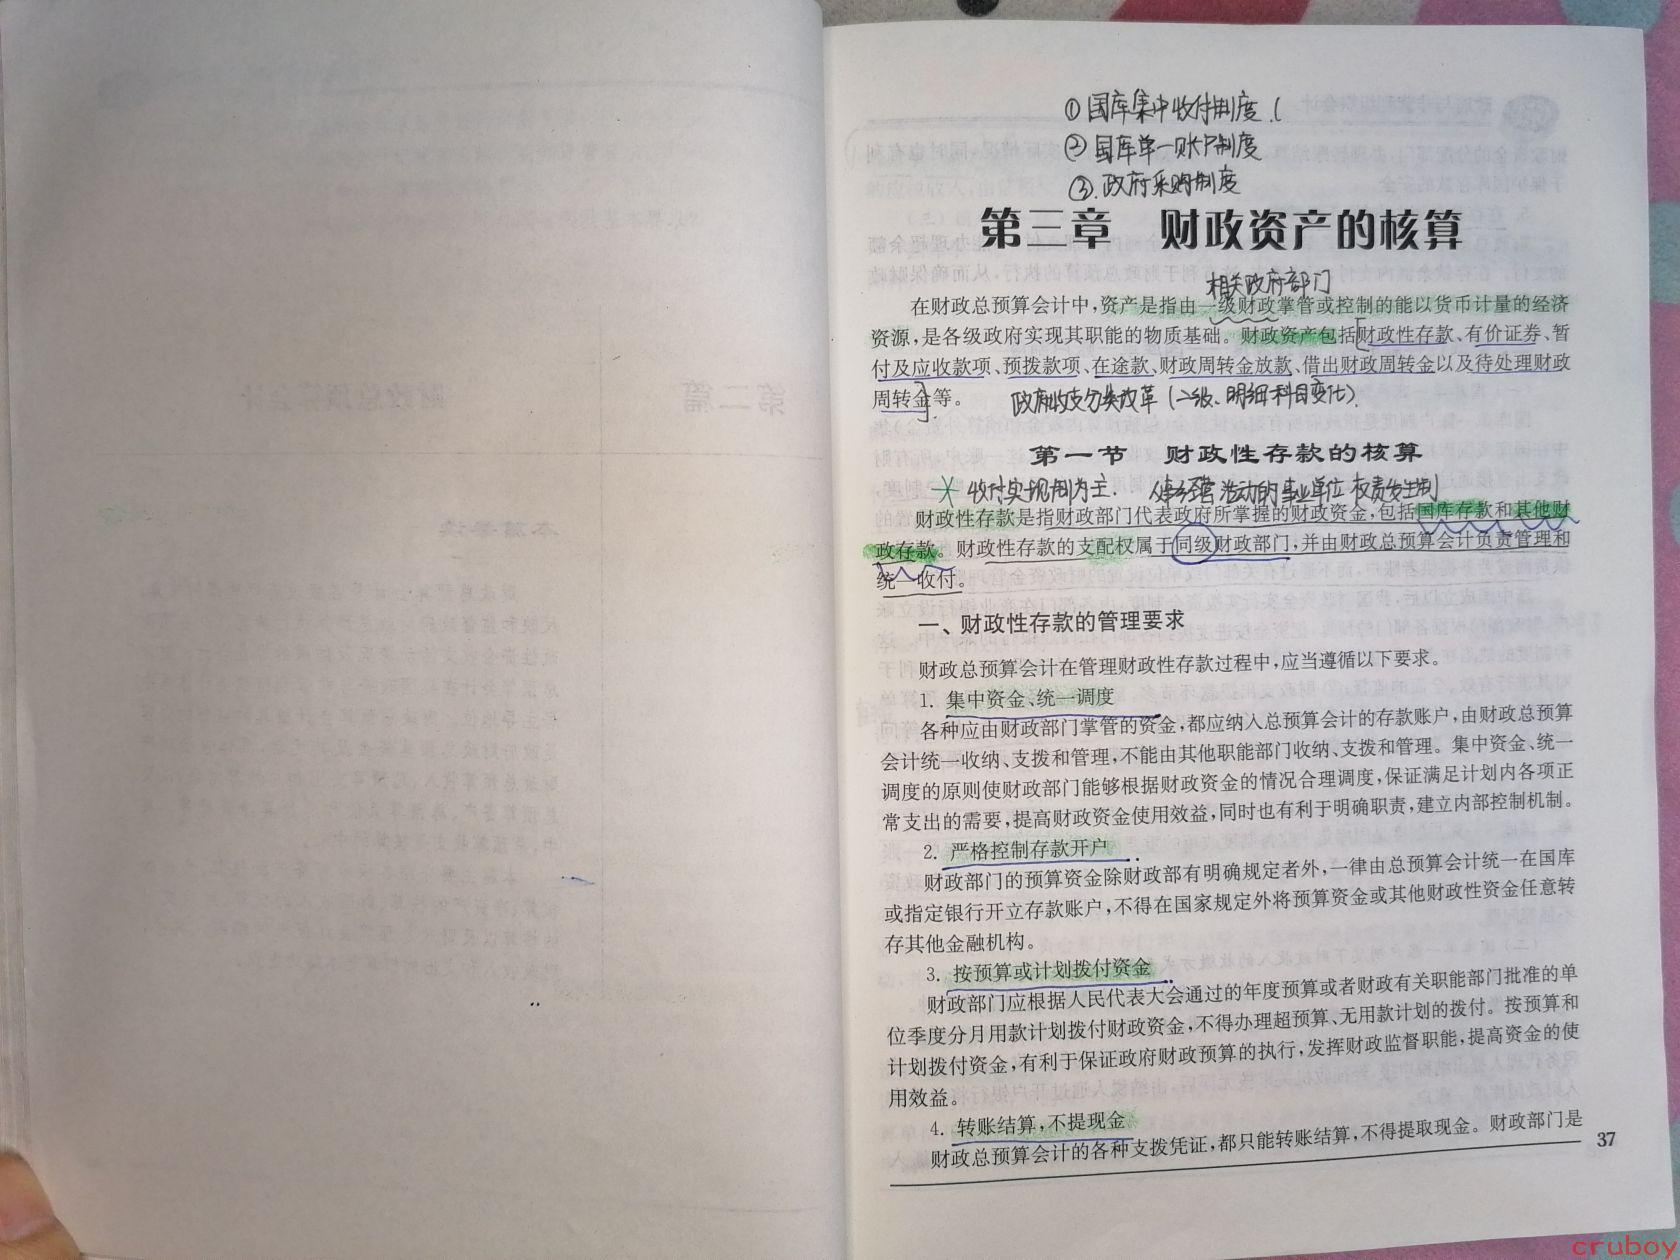 ①国库集中收付制度.(
②国库单一账户制度
③.政府采购制度
第三章 财政资产的核算
相关政府部门
在财政总预算会计中,资产是指由一级财政掌管或控制的能以货币计量的经济
资源,是各级政府实现其职能的物质基础。财政资产包括财政性存款、有价证券、暂
付及应收款项、预拨款项、在途款、财政周转金放款、借出财政周转金以及待处理财政
周转金等。
政府收支分类改革(二级、明细科目变化).
第一节 财政性存款的核算
收付实现制为主. 从事经营活动的事业单位 权责发生制
财政性存款是指财政部门代表政府所掌握的财政资金,包括国库存款和其他财
政存款。财政性存款的支配权属于同级财政部门,并由财政总预算会计负责管理和
统一收付。
一、财政性存款的管理要求
财政总预算会计在管理财政性存款过程中,应当遵循以下要求。
1. 集中资金、统一调度
各种应由财政部门掌管的资金,都应纳入总预算会计的存款账户,由财政总预算
会计统一收纳、支拨和管理,不能由其他职能部门收纳、支拨和管理。集中资金、统一
调度的原则使财政部门能够根据财政资金的情况合理调度,保证满足计划内各项正
常支出的需要,提高财政资金使用效益,同时也有利于明确职责,建立内部控制机制。
2. 严格控制存款开户
财政部门的预算资金除财政部有明确规定者外,一律由总预算会计统一在国库
或指定银行开立存款账户,不得在国家规定外将预算资金或其他财政性资金任意转
存其他金融机构。
3. 按预算或计划拨付资金
财政部门应根据人民代表大会通过的年度预算或者财政有关职能部门批准的单
位季度分月用款计划拨付财政资金,不得办理超预算、无用款计划的拨付。按预算和
计划拨付资金,有利于保证政府财政预算的执行,发挥财政监督职能,提高资金的使
用效益。
4. 转账结算,不提现金
财政总预算会计的各种支拨凭证,都只能转账结算,不得提取现金。财政部门是
37
cruboy